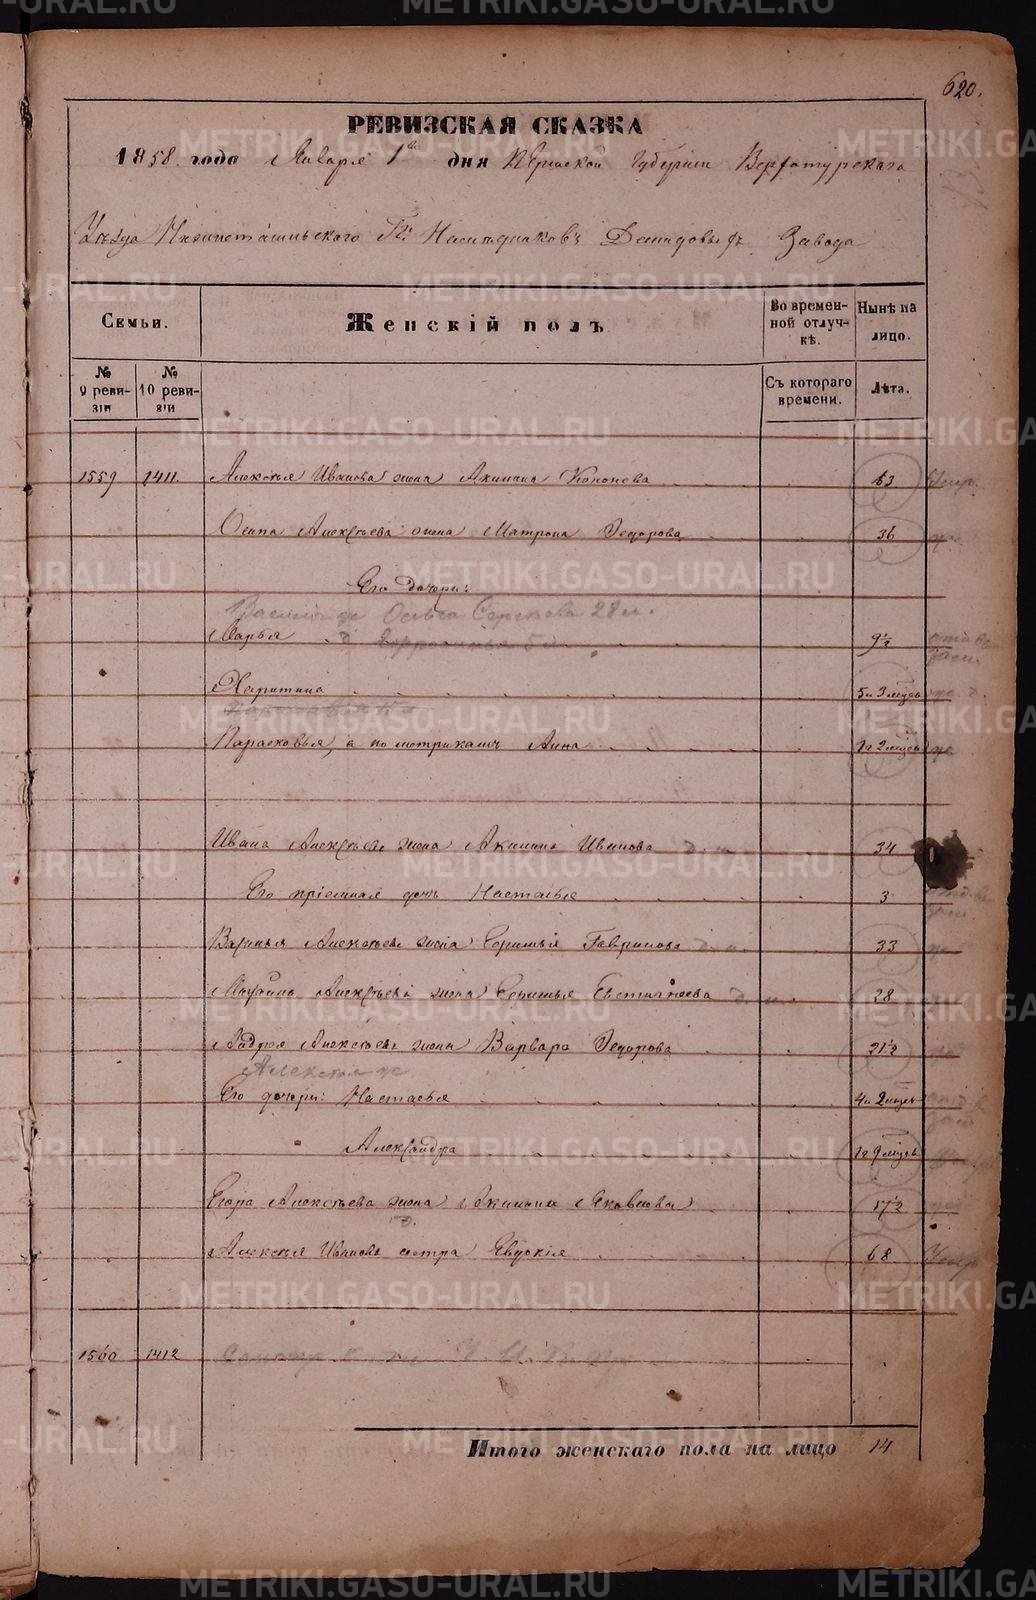 METRIKI.GASO-URAL.RU
620.
РЕВИЗСКАЯ СКАЗКА
1858 года Января 1го дня Пермской Губернии Верхотурскаго
Уѣзда Нижнетагильского Гг: Наслѣдниковъ Демидовыхъ Завода
Семьи.
Женскій полъ.
Во времен-
ной отлуч-
кѣ.
Нынѣ на
лицо.
№
9 реви-
зіи
№
10 реви-
зіи
Съ котораго
времени.
Лѣта.
1559 1411. Алексѣя Иванова жена Акилина Кононова 63 Умр.
Осипа Алексѣева жена Матрона Федорова 36
Его дочери:
Ольга Сергѣева 28 л.
Марья 9½
Харитина 5 и 3 мѣсяц
Парасковья, а по метрикамъ Анна 1 и 2 мѣсяц
Ивана Алексѣева жена Акилина Иванова 34
Его пріемная дочь Настасья 3
Алексѣева жена Гаврилова 33
Алексѣева жена Евстигнѣева 28
Андрея Алексѣева жена Варвара Федорова 21½
Его дочери: Настасья 4 и 2 мѣсяц
" Александра 1 и 9 мѣсяц
Егора Алексѣева жена Акилина Яковлева 17½
Алексѣя Иванова сестра Евдокія 68 Умр.
1560 1412
Итого женскаго пола на лицо 14